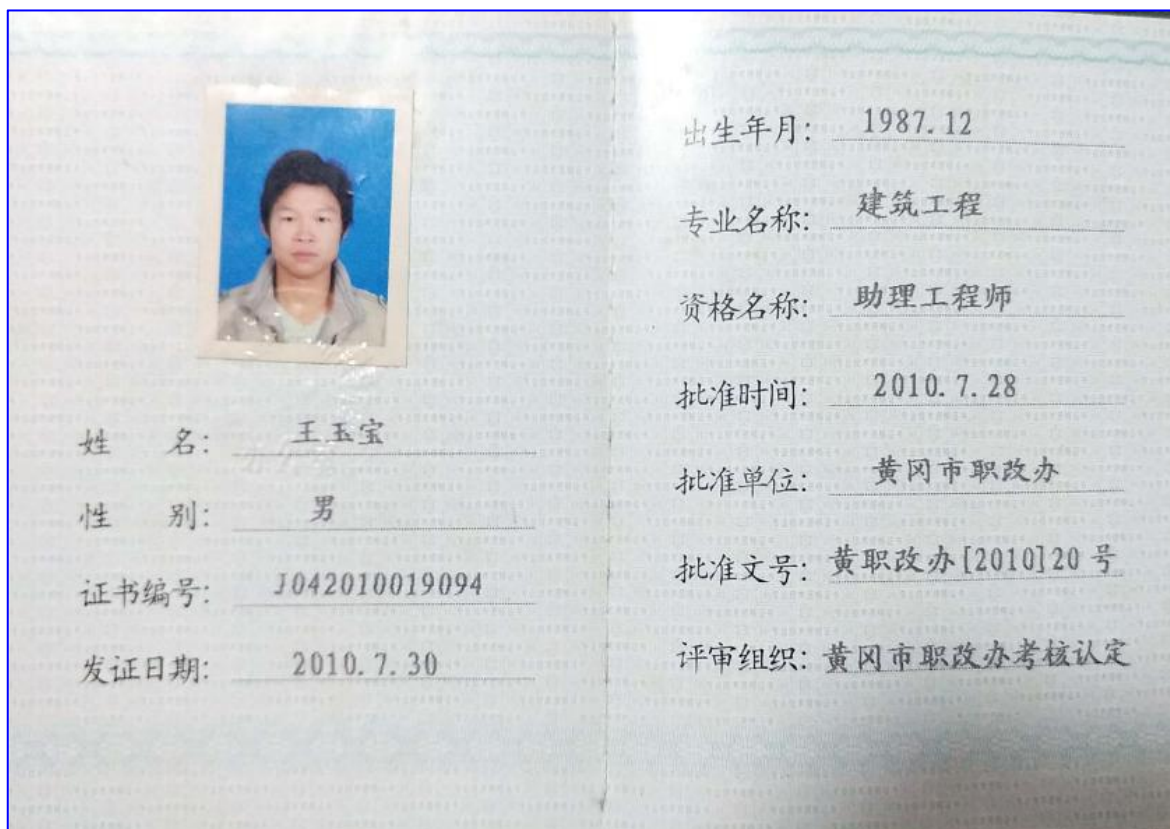 姓 名: 王玉宝
性 别: 男
证书编号: J042010019094
发证日期: 2010.7.30
出生年月: 1987.12
专业名称: 建筑工程
资格名称: 助理工程师
批准时间: 2010.7.28
批准单位: 黄冈市职改办
批准文号: 黄职改办[2010]20号
评审组织: 黄冈市职改办考核认定